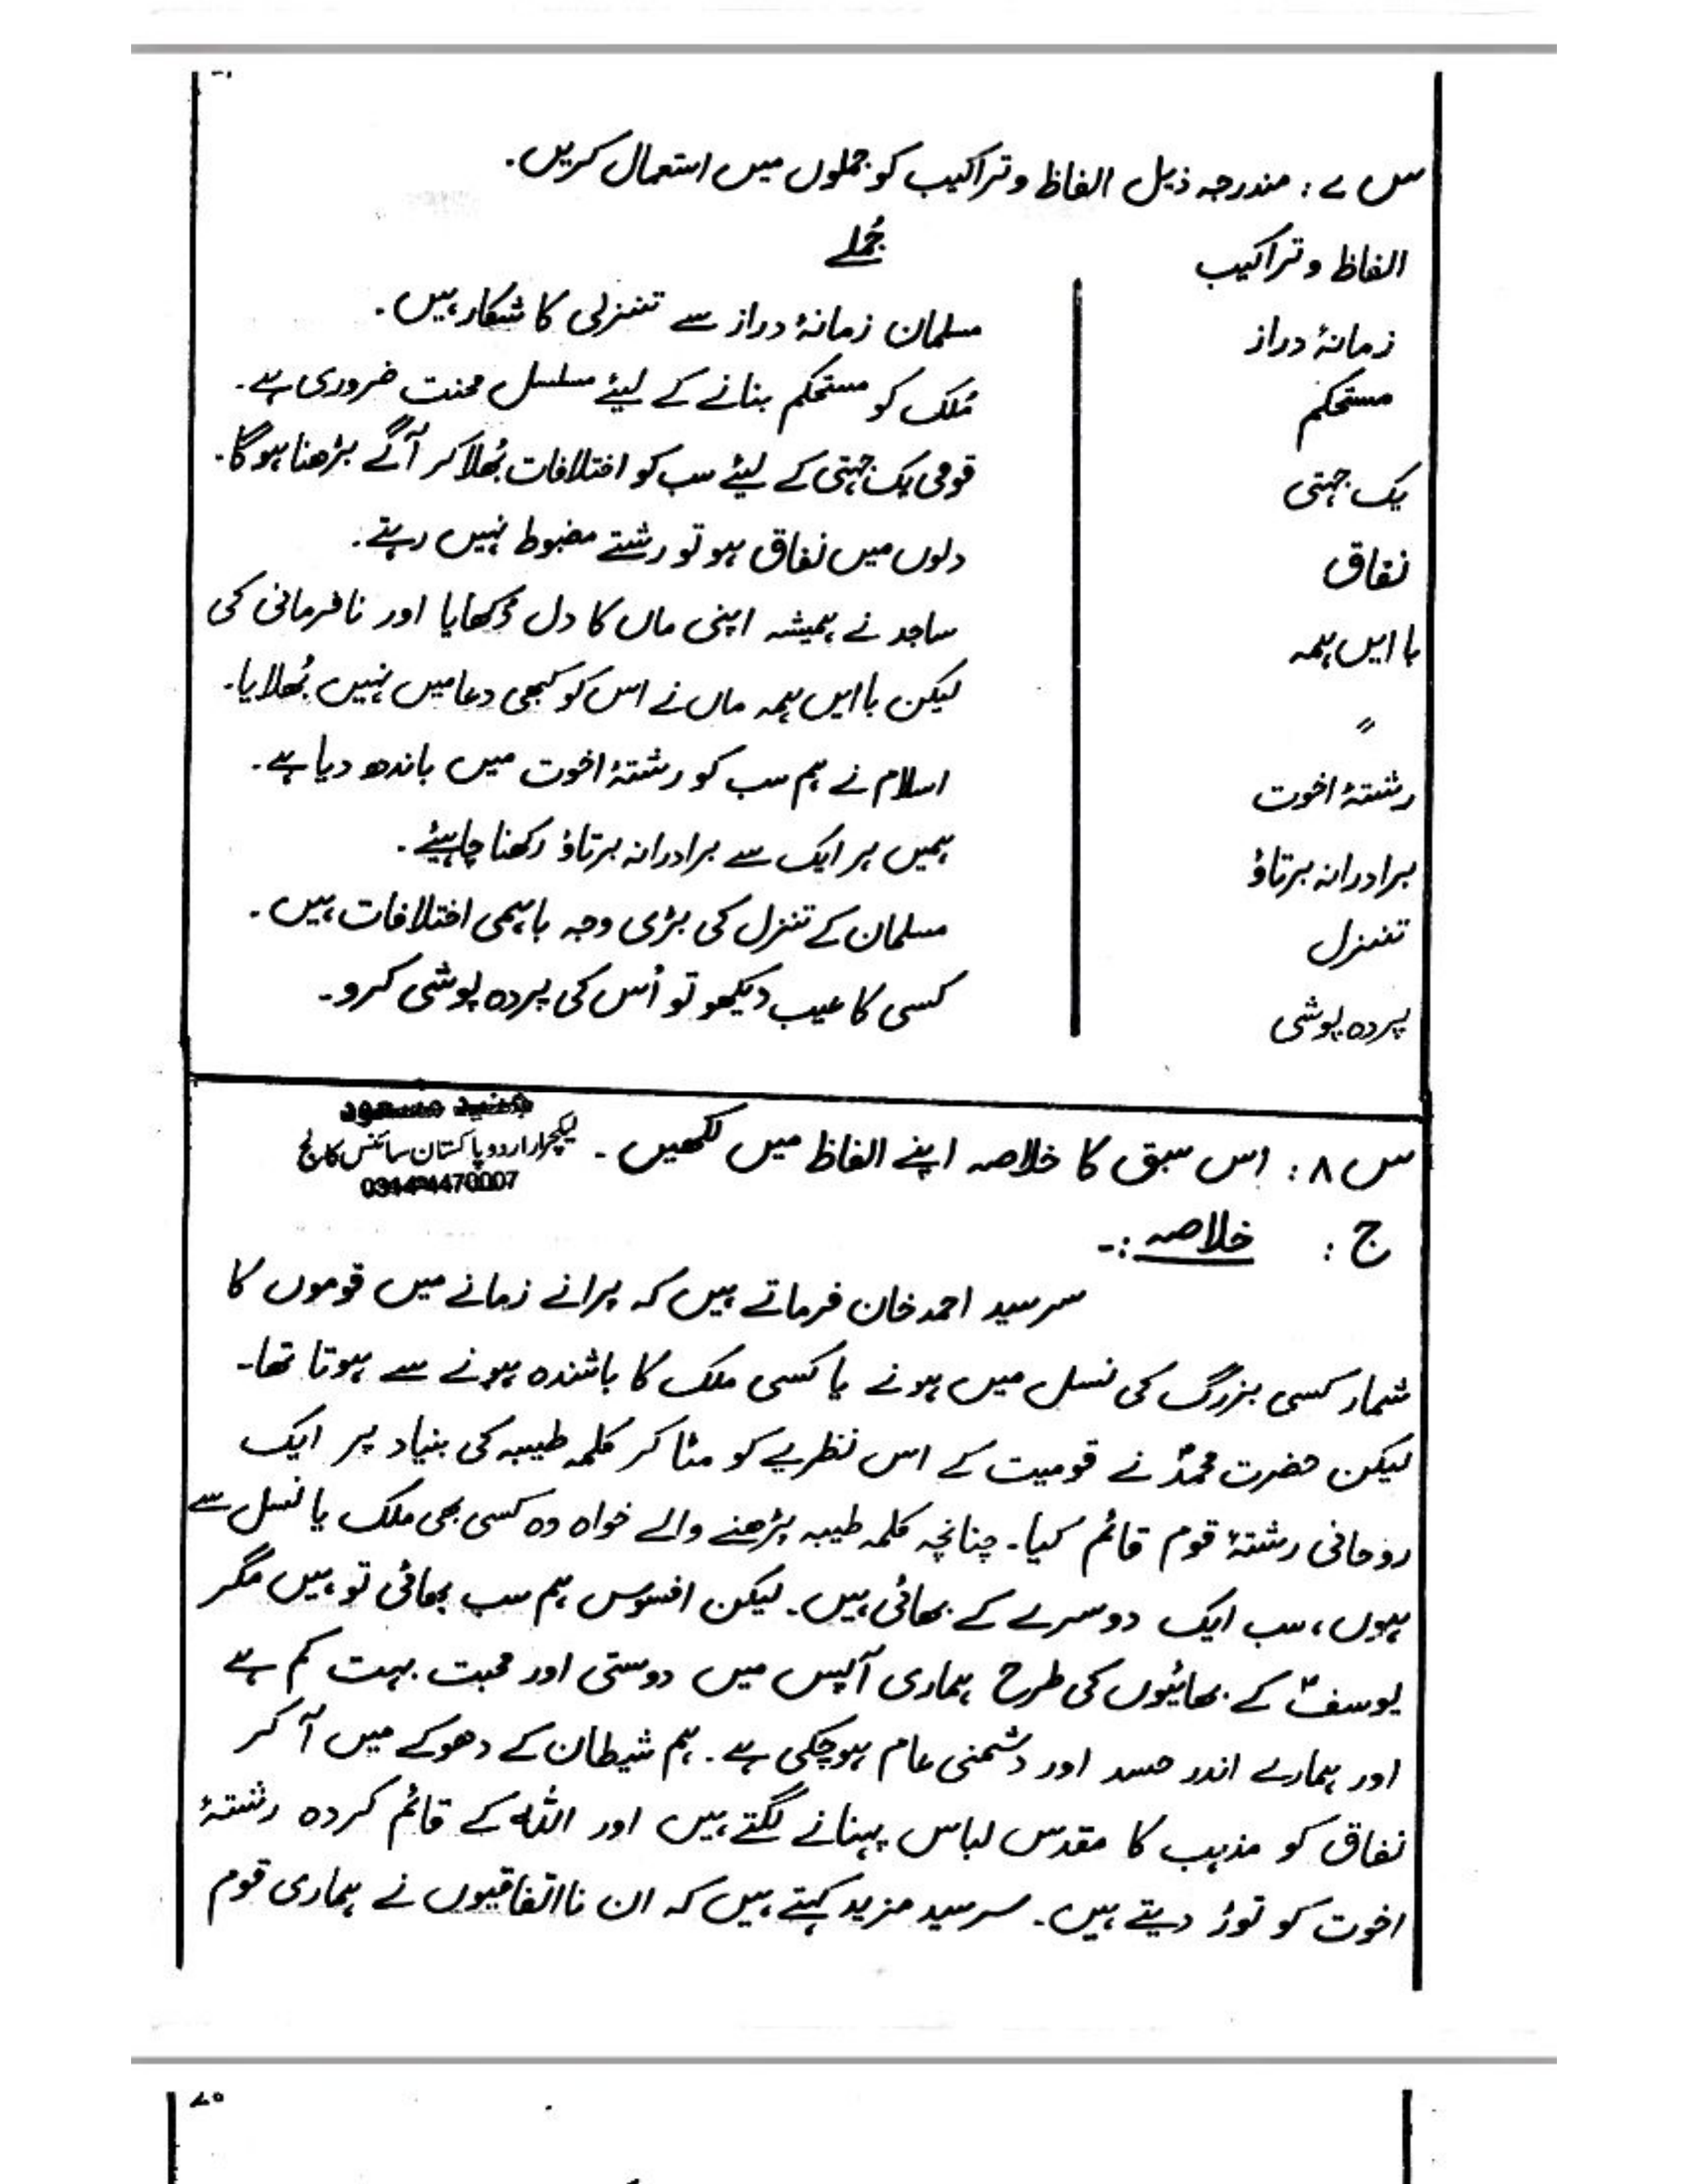 س ۷ : مندرجہ ذیل الفاظ و تراکیب کو جملوں میں استعمال کریں۔
الفاظ و تراکیب جُملے
زمانۂ دراز مسلمان زمانۂ دراز سے تنزلی کا شکار ہیں۔
مستحکم مُلک کو مستحکم بنانے کے لیئے مسلسل محنت ضروری ہے۔
یک جہتی قومی یک جہتی کے لیئے سب کو اختلافات بُھلا کر آگے بڑھنا ہو گا۔
نفاق دلوں میں نفاق ہو تو رشتے مضبوط نہیں رہتے۔
با ایں ہمہ ساجد نے ہمیشہ اپنی ماں کا دل دُکھایا اور نافرمانی کی
〃 لیکن با ایں ہمہ ماں نے اس کو کبھی دعا میں نہیں بُھلایا۔
رشتۂ اخوت اسلام نے ہم سب کو رشتۂ اخوت میں باندھ دیا ہے۔
برادرانہ برتاؤ ہمیں ہر ایک سے برادرانہ برتاؤ رکھنا چاہیئے۔
تنزل مسلمان کے تنزل کی بڑی وجہ باہمی اختلافات ہیں۔
پردہ پوشی کسی کا عیب دیکھو تو اُس کی پردہ پوشی کرو۔
جنید مسعود
لیکچرار اردو پاکستان سائنس کالج
0344-4470007
س ۸ : اس سبق کا خلاصہ اپنے الفاظ میں لکھیں۔
ج : خلاصہ :-
سرسید احمد خان فرماتے ہیں کہ پرانے زمانے میں قوموں کا
شمار کسی بزرگ کی نسل میں ہونے یا کسی ملک کا باشندہ ہونے سے ہوتا تھا۔
لیکن حضرت محمدؐ نے قومیت کے اس نظریے کو مٹا کر کلمہ طیبہ کی بنیاد پر ایک
روحانی رشتۂ قوم قائم کیا۔ چنانچہ کلمہ طیبہ پڑھنے والے خواہ وہ کسی بھی ملک یا نسل سے
ہوں، سب ایک دوسرے کے بھائی ہیں۔ لیکن افسوس ہم سب بھائی تو ہیں مگر
یوسفؑ کے بھائیوں کی طرح ہماری آپس میں دوستی اور محبت بہت کم ہے
اور ہمارے اندر حسد اور دشمنی عام ہو چکی ہے۔ ہم شیطان کے دھوکے میں آ کر
نفاق کو مذہب کا مقدس لباس پہنانے لگتے ہیں اور اللہ کے قائم کردہ رشتۂ
اخوت کو توڑ دیتے ہیں۔ سرسید مزید کہتے ہیں کہ ان نااتفاقیوں نے ہماری قوم